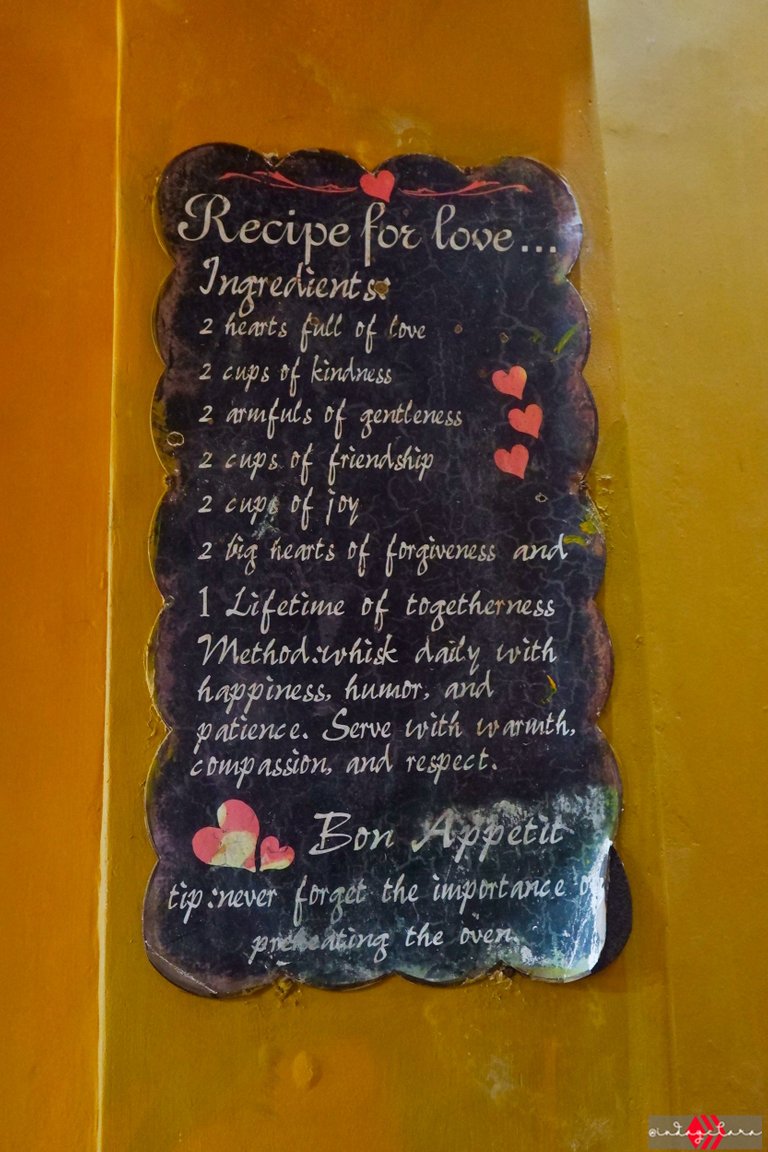 Recipe for love...
Ingredients:
2 hearts full of love
2 cups of kindness
2 armfuls of gentleness
2 cups of friendship
2 cups of joy
2 big hearts of forgiveness and
1 Lifetime of togetherness
Method:whisk daily with
happiness, humor, and
patience. Serve with warmth,
compassion, and respect.
Bon Appetit
tip:never forget the importance of
preheating the oven.
@indagclara